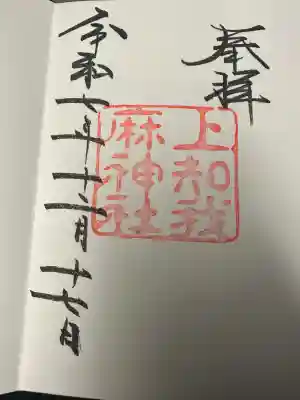 奉拝
上知我
麻神社
令和七年十二月十七日